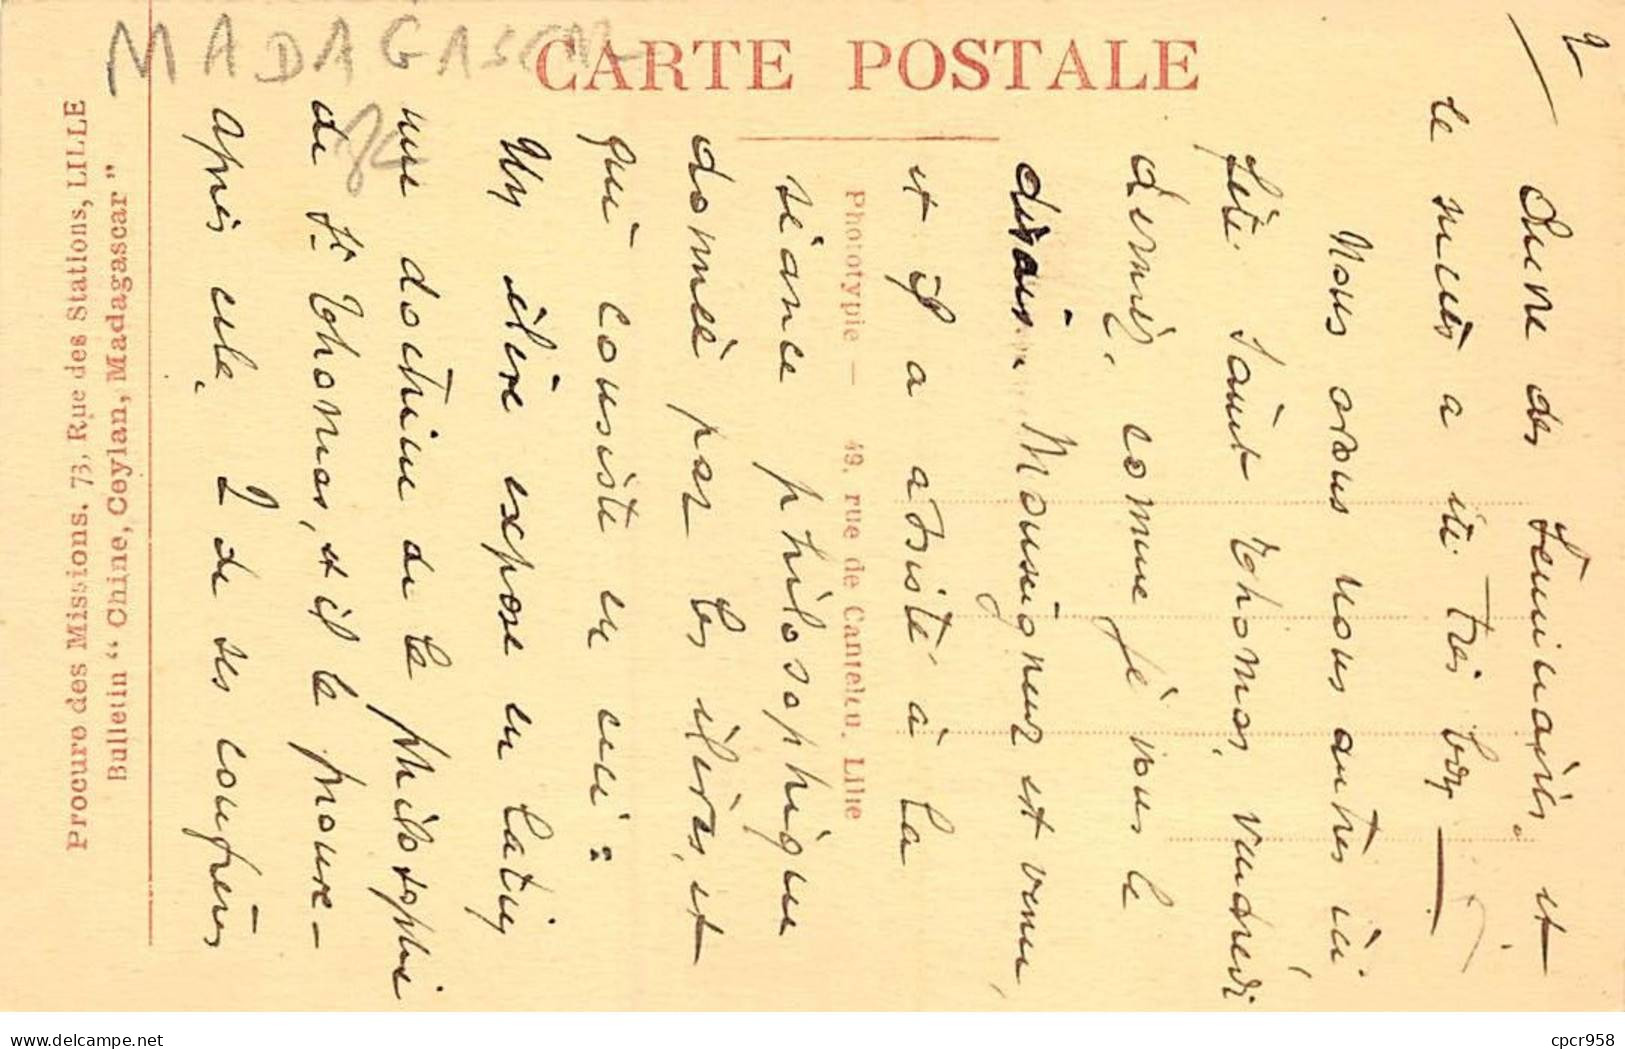 MADAGASCAR
CARTE POSTALE
Procure des Missions. 73, Rue des Stations, LILLE
Bulletin “ Chine, Ceylan, Madagascar ”
Phototypie — 49, rue de Canteleu, Lille
2
Œuvre des Séminaires, et
le succès a été très bon —
Nous avons nous autres ici
fêté Saint Thomas, vendredi
dernier, comme je vous le
disais. Monseigneur est venu,
et il a assisté à la
séance philosophique
donnée par les élèves, et
qui consiste en ceci :
Un élève expose en latin
une doctrine de la philosophie
de St Thomas, et il la prouve –
après cela, 2 de ses confrères
www.delcampe.net
cpcr958